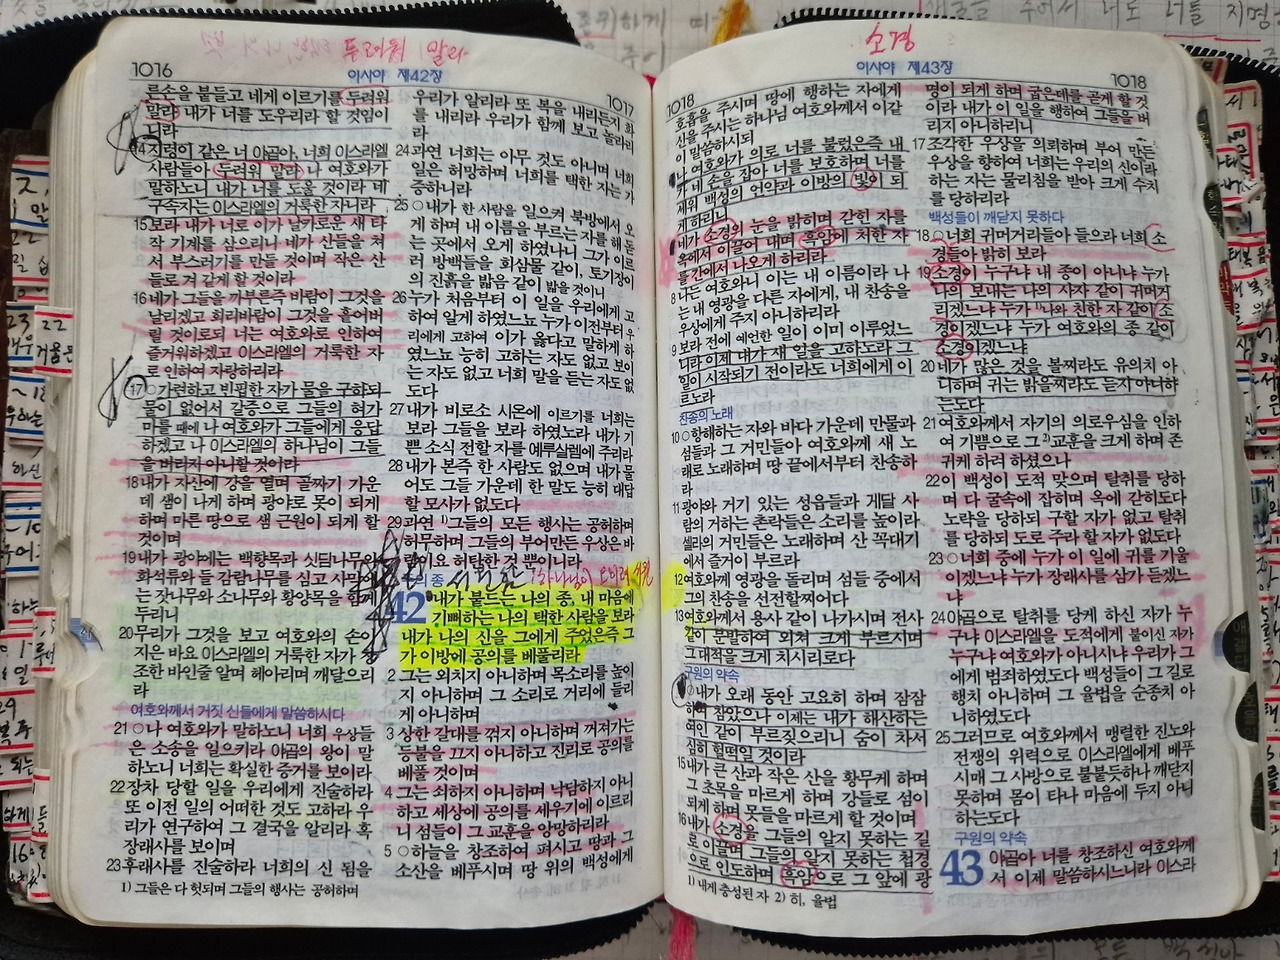 두려워 말라
1016
이사야 제42장
1017
른손을 붙들고 네게 이르기를 두려워
말라 내가 너를 도우리라 할 것임이
니라
14 지렁이 같은 너 야곱아, 너희 이스라엘
사람들아 두려워 말라 나 여호와가
말하노니 내가 너를 도울 것이라 네
구속자는 이스라엘의 거룩한 자니라
15 보라 내가 너로 이가 날카로운 새 타
작 기계를 삼으리니 네가 산들을 쳐
서 부스러기를 만들 것이며 작은 산
들로 겨 같게 할 것이라
16 네가 그들을 까부른즉 바람이 그것을
날리겠고 회리바람이 그것을 흩어버
릴 것이로되 너는 여호와로 인하여
즐거워하겠고 이스라엘의 거룩한 자
로 인하여 자랑하리라
17 ○가련하고 빈핍한 자가 물을 구하되
물이 없어서 갈증으로 그들의 혀가
마를 때에 나 여호와가 그들에게 응답
하겠고 나 이스라엘의 하나님이 그들
을 버리지 아니할 것이라
18 내가 자산에 강을 열며 골짜기 가운
데 샘이 나게 하며 광야로 못이 되게
하며 마른 땅으로 샘 근원이 되게 할
것이며
19 내가 광야에는 백향목과 싯딤나무와
화석류와 들 감람나무를 심고 사막에는
잣나무와 소나무와 황양목을 함께
두리니
20 무리가 그것을 보고 여호와의 손이
지은 바요 이스라엘의 거룩한 자가 창
조한 바인줄 알며 헤아리며 깨달으리
라
여호와께서 거짓 신들에게 말씀하시다
21 ○나 여호와가 말하노니 너희 우상들
은 소송을 일으키라 야곱의 왕이 말
하노니 너희는 확실한 증거를 보이라
22 장차 당할 일을 우리에게 진술하라
또 이전 일의 어떠한 것도 고하라 우
리가 연구하여 그 결국을 알리라 혹
장래사를 보이며
23 후래사를 진술하라 너희의 신 됨을
1) 그들은 다 헛되며 그들의 행사는 공허하며
우리가 알리라 또 복을 내리든지 화
를 내리라 우리가 함께 보고 놀라리
라
24 과연 너희는 아무 것도 아니며 너희
일은 허망하며 너희를 택한 자는 가
증하니라
25 ○내가 한 사람을 일으켜 북방에서 오
게 하며 내 이름을 부르는 자를 해 돋
는 곳에서 오게 하였나니 그가 이르
러 방백들을 회삼물 같이, 토기장이
의 진흙을 밟음 같이 밟을 것이니
26 누가 처음부터 이 일을 우리에게 고
하여 알게 하였느뇨 누가 이전부터 우
리에게 고하여 이가 옳다고 말하게 하
였느뇨 능히 고하는 자도 없고 보이
는 자도 없고 너희 말을 듣는 자도 없
도다
27 내가 비로소 시온에 이르기를 너희는
보라 그들을 보라 하였노라 내가 기
쁜 소식 전할 자를 예루살렘에 주리라
28 내가 본즉 한 사람도 없으며 내가 물
어도 그들 가운데 한 말도 능히 대답
할 모사가 없도다
29 과연 1)그들의 모든 행사는 공허하며
허무하며 그들의 부어만든 우상은 바
람이요 허탄한 것 뿐이니라
의 종
42 내가 붙드는 나의 종, 내 마음에
기뻐하는 나의 택한 사람을 보라
내가 나의 신을 그에게 주었은즉 그
가 이방에 공의를 베풀리라
2 그는 외치지 아니하며 목소리를 높이
지 아니하며 그 소리로 거리에 들리
게 아니하며
3 상한 갈대를 꺾지 아니하며 꺼져가는
등불을 끄지 아니하고 진리로 공의를
베풀 것이며
4 그는 쇠하지 아니하며 낙담하지 아니
하고 세상에 공의를 세우기에 이르리
니 섬들이 그 교훈을 앙망하리라
5 ○하늘을 창조하여 펴시고 땅과 그
소산을 베푸시며 땅 위의 백성에게
소경
1018
이사야 제43장
1018
호흡을 주시며 땅에 행하는 자에게
신을 주시는 하나님 여호와께서 이같
이 말씀하시되
나 여호와가 의로 너를 불렀은즉 내
가 네 손을 잡아 너를 보호하며 너를
세워 백성의 언약과 이방의 빛이 되
게 하리니
네가 소경의 눈을 밝히며 갇힌 자를
옥에서 이끌어 내며 흑암에 처한 자
를 간에서 나오게 하리라
8 나는 여호와니 이는 내 이름이라 나
는 내 영광을 다른 자에게, 내 찬송을
우상에게 주지 아니하리라
9 보라 전에 예언한 일이 이미 이루었느
니라 이제 내가 새 일을 고하노라 그
일이 시작되기 전이라도 너희에게 이
르노라
찬송의 노래
10 ○항해하는 자와 바다 가운데 만물과
섬들과 그 거민들아 여호와께 새 노
래로 노래하며 땅 끝에서부터 찬송하
라
11 광야와 거기 있는 성읍들과 게달 사
람의 거하는 촌락들은 소리를 높이라
셀라의 거민들은 노래하며 산 꼭대기
에서 즐거이 부르라
12 여호와께 영광을 돌리며 섬들 중에서
그의 찬송을 선전할찌어다
13 여호와께서 용사 같이 나가시며 전사
같이 분발하여 외쳐 크게 부르시며
그 대적을 크게 치시리로다
구원의 약속
○내가 오래 동안 고요히 하며 잠잠
하여 참았으나 이제는 내가 해산하는
여인 같이 부르짖으리니 숨이 차서
심히 헐떡일 것이라
15 내가 큰 산과 작은 산을 황무케 하며
그 초목을 마르게 하며 강들로 섬이
되게 하며 못들을 마르게 할 것이며
16 내가 소경을 그들의 알지 못하는 길
로 이끌며 그들의 알지 못하는 첩경
으로 인도하며 흑암으로 그 앞에 광
1) 내게 충성된 자 2) 히, 율법
명이 되게 하며 굽은데를 곧게 할 것
이라 내가 이 일을 행하여 그들을 버
리지 아니하리니
17 조각한 우상을 의뢰하며 부어 만든
우상을 향하여 너희는 우리의 신이라
하는 자는 물리침을 받아 크게 수치
를 당하리라
백성들이 깨닫지 못하다
18 ○너희 귀머거리들아 들으라 너희 소
경들아 밝히 보라
19 소경이 누구냐 내 종이 아니냐 누가
나의 보내는 나의 사자 같이 귀머거
리겠느냐 누가 1)나와 친한 자 같이 소
경이겠느냐 누가 여호와의 종 같이
소경이겠느냐
20 네가 많은 것을 볼찌라도 유의치 아
니하며 귀는 밝을찌라도 듣지 아니하
는도다
21 여호와께서 자기의 의로우심을 인하
여 기쁨으로 그 2)교훈을 크게 하며 존
귀케 하려 하셨으나
22 이 백성이 도적 맞으며 탈취를 당하
며 다 굴속에 잡히며 옥에 갇히도다
노략을 당하되 구할 자가 없고 탈취
를 당하되 도로 주라 할 자가 없도다
23 ○너희 중에 누가 이 일에 귀를 기울
이겠느냐 누가 장래사를 삼가 듣겠느
냐
24 야곱으로 탈취를 당케 하신 자가 누
구냐 이스라엘을 도적에게 붙이신 자가
누구냐 여호와가 아니시냐 우리가 그
에게 범죄하였도다 백성들이 그 길로
행치 아니하며 그 율법을 순종치 아
니하였도다
25 그러므로 여호와께서 맹렬한 진노와
전쟁의 위력으로 이스라엘에게 베푸
시매 그 사방으로 불붙듯하나 깨닫지
못하며 몸이 타나 마음에 두지 아니
하는도다
구원의 약속
43 야곱아 너를 창조하신 여호와께
서 이제 말씀하시느니라 이스라